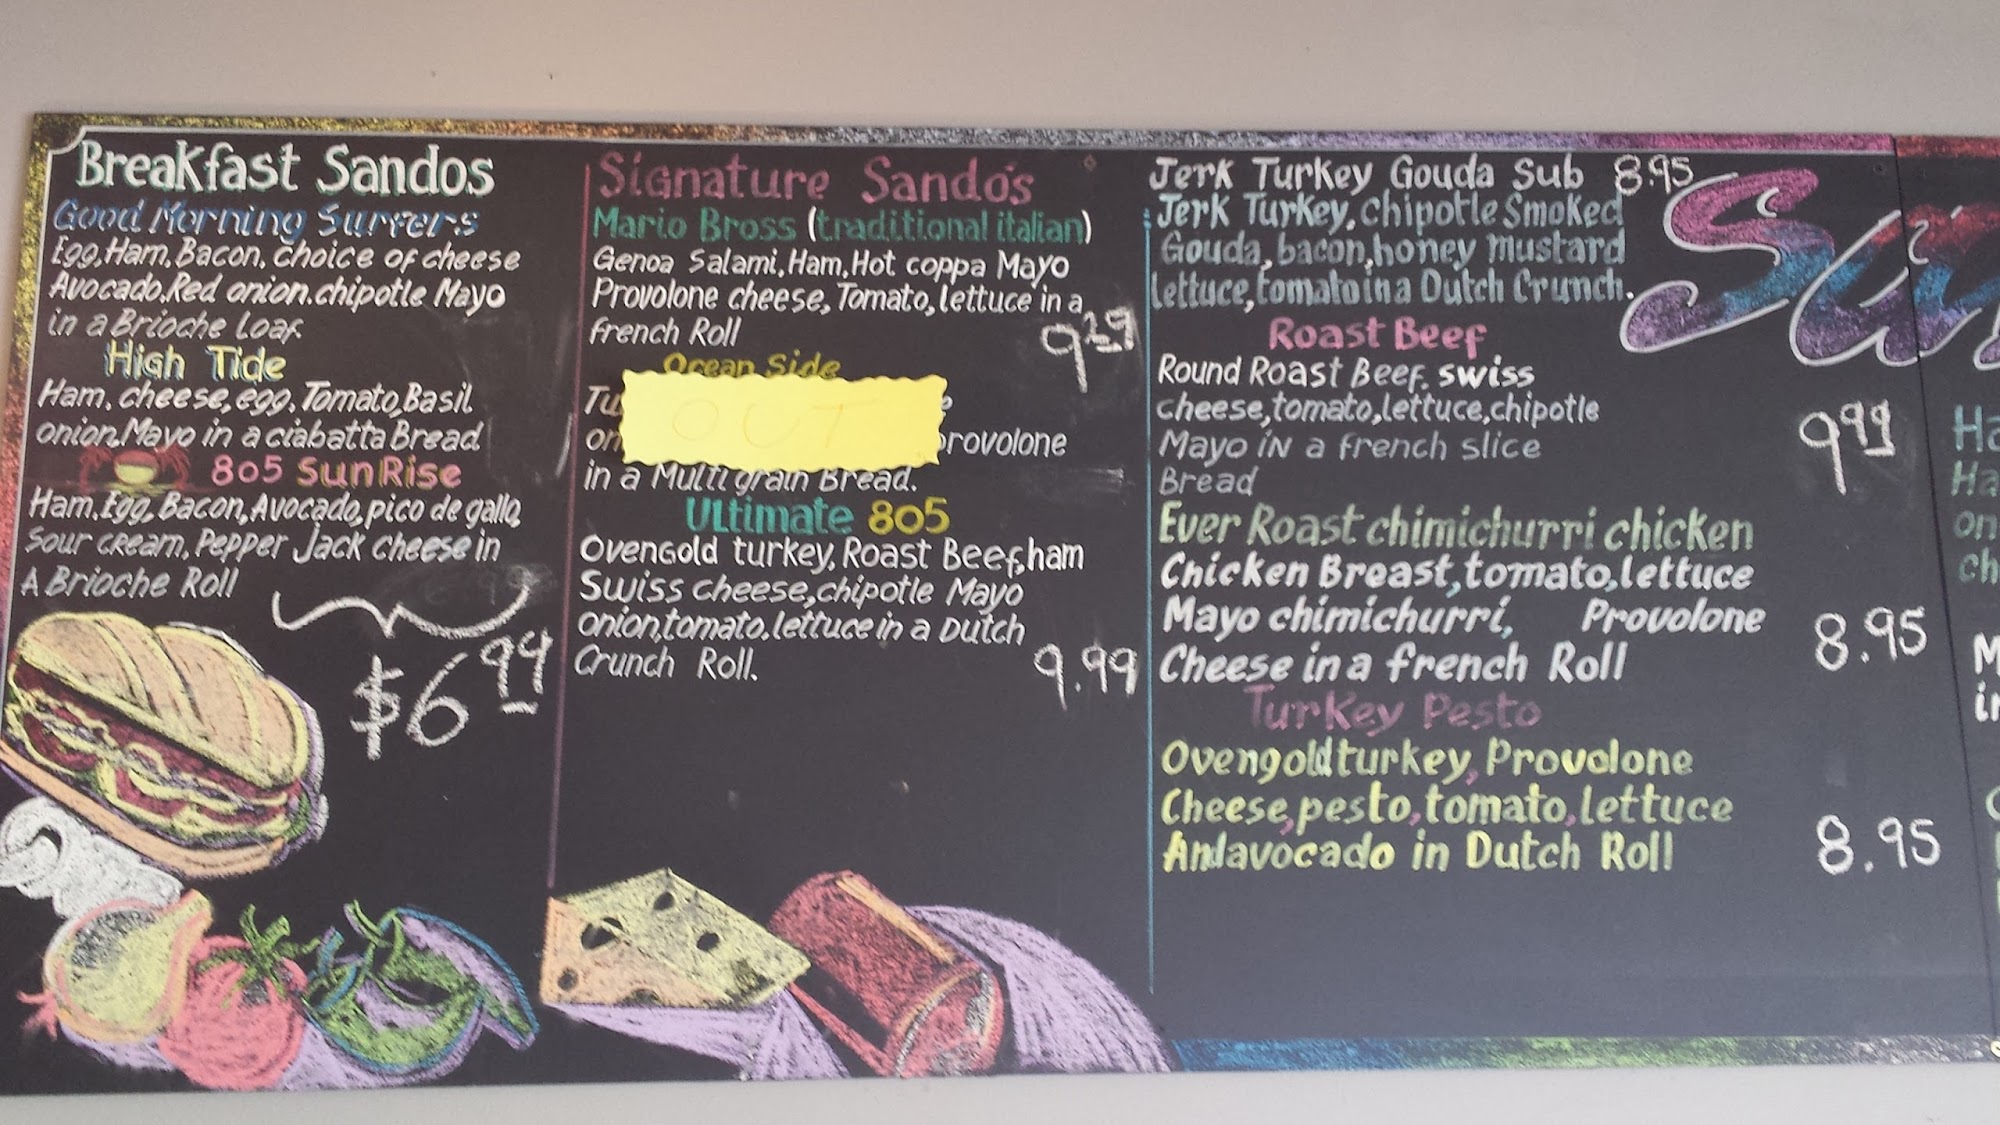 Breakfast Sandos
Good Morning Surfers
Egg, Ham, Bacon, choice of cheese
Avocado, Red onion, chipotle Mayo
in a Brioche Loaf
High Tide
Ham, cheese, egg, Tomato, Basil
onion, Mayo in a ciabatta Bread
805 SunRise
Ham, Egg, Bacon, Avocado, pico de gallo,
Sour cream, Pepper Jack cheese in
A Brioche Roll
$6.99
Signature Sando's
Mario Bross (traditional italian)
Genoa Salami, Ham, Hot coppa Mayo
Provolone cheese, Tomato, lettuce in a
french Roll
Ocean Side
OUT
provolone
in a Multi grain Bread.
Ultimate 805
Ovengold turkey, Roast Beef, ham
Swiss cheese, chipotle Mayo
onion, tomato, lettuce in a Dutch
Crunch Roll.
9.99
Jerk Turkey Gouda Sub 8.95
Jerk Turkey, chipotle Smoked
Gouda, bacon, honey mustard
lettuce, tomato in a Dutch Crunch.
Roast Beef
Round Roast Beef, swiss
cheese, tomato, lettuce, chipotle
Mayo in a french slice
Bread
9.99
Ever Roast chimichurri chicken
Chicken Breast, tomato, lettuce
Mayo chimichurri, Provolone
Cheese in a french Roll
8.95
Turkey Pesto
Ovengold turkey, Provolone
Cheese, pesto, tomato, lettuce
And avocado in Dutch Roll
8.95